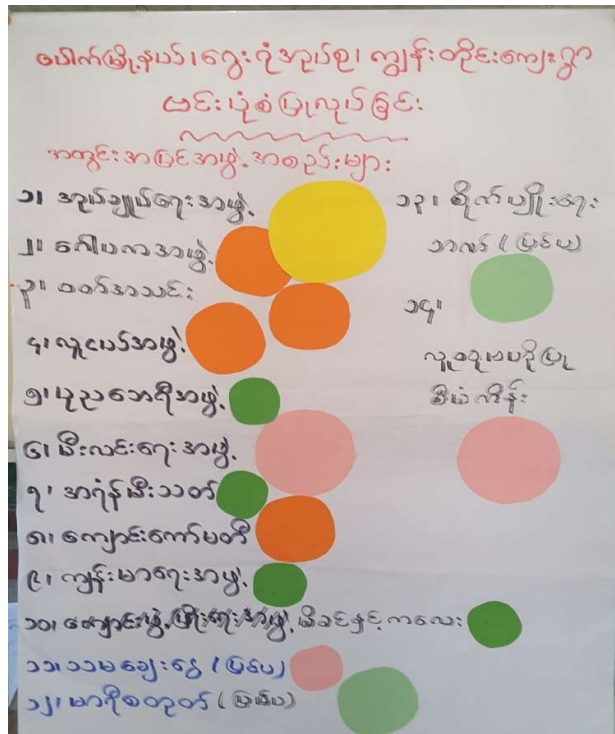 ပေါက်မြို့နယ်၊ ရွေးရုံအုပ်စု၊ ကျွန်းတိုင်းကျေးရွာ
ဗင်းပုံစံပြုလုပ်ခြင်း
အတွင်းအပြင်အဖွဲ့အစည်းများ
၁၊ အုပ်ချုပ်ရေးအဖွဲ့
၂၊ ဂေါပကအဖွဲ့
၃၊ ဝတ်အသင်း
၄၊ လူငယ်အဖွဲ့
၅၊ ပုညဘေရီအဖွဲ့
၆၊ မီးလင်းရေးအဖွဲ့
၇၊ အရံန်မီးသတ်
၈၊ ကျောင်းကော်မတီ
၉၊ ကျန်းမာရေးအဖွဲ့
၁၀၊ မိခင်နှင့်ကလေး
၁၁၊ သမချေးငွေ (ပြင်ပ)
၁၂၊ မာရီစတုတ် (ပြင်ပ)
၁၃၊ စိုက်ပျိုးရေး
ဘဏ် (ပြင်ပ)
၁၄၊
လူထုဗဟိုပြု
စီမံကိန်း